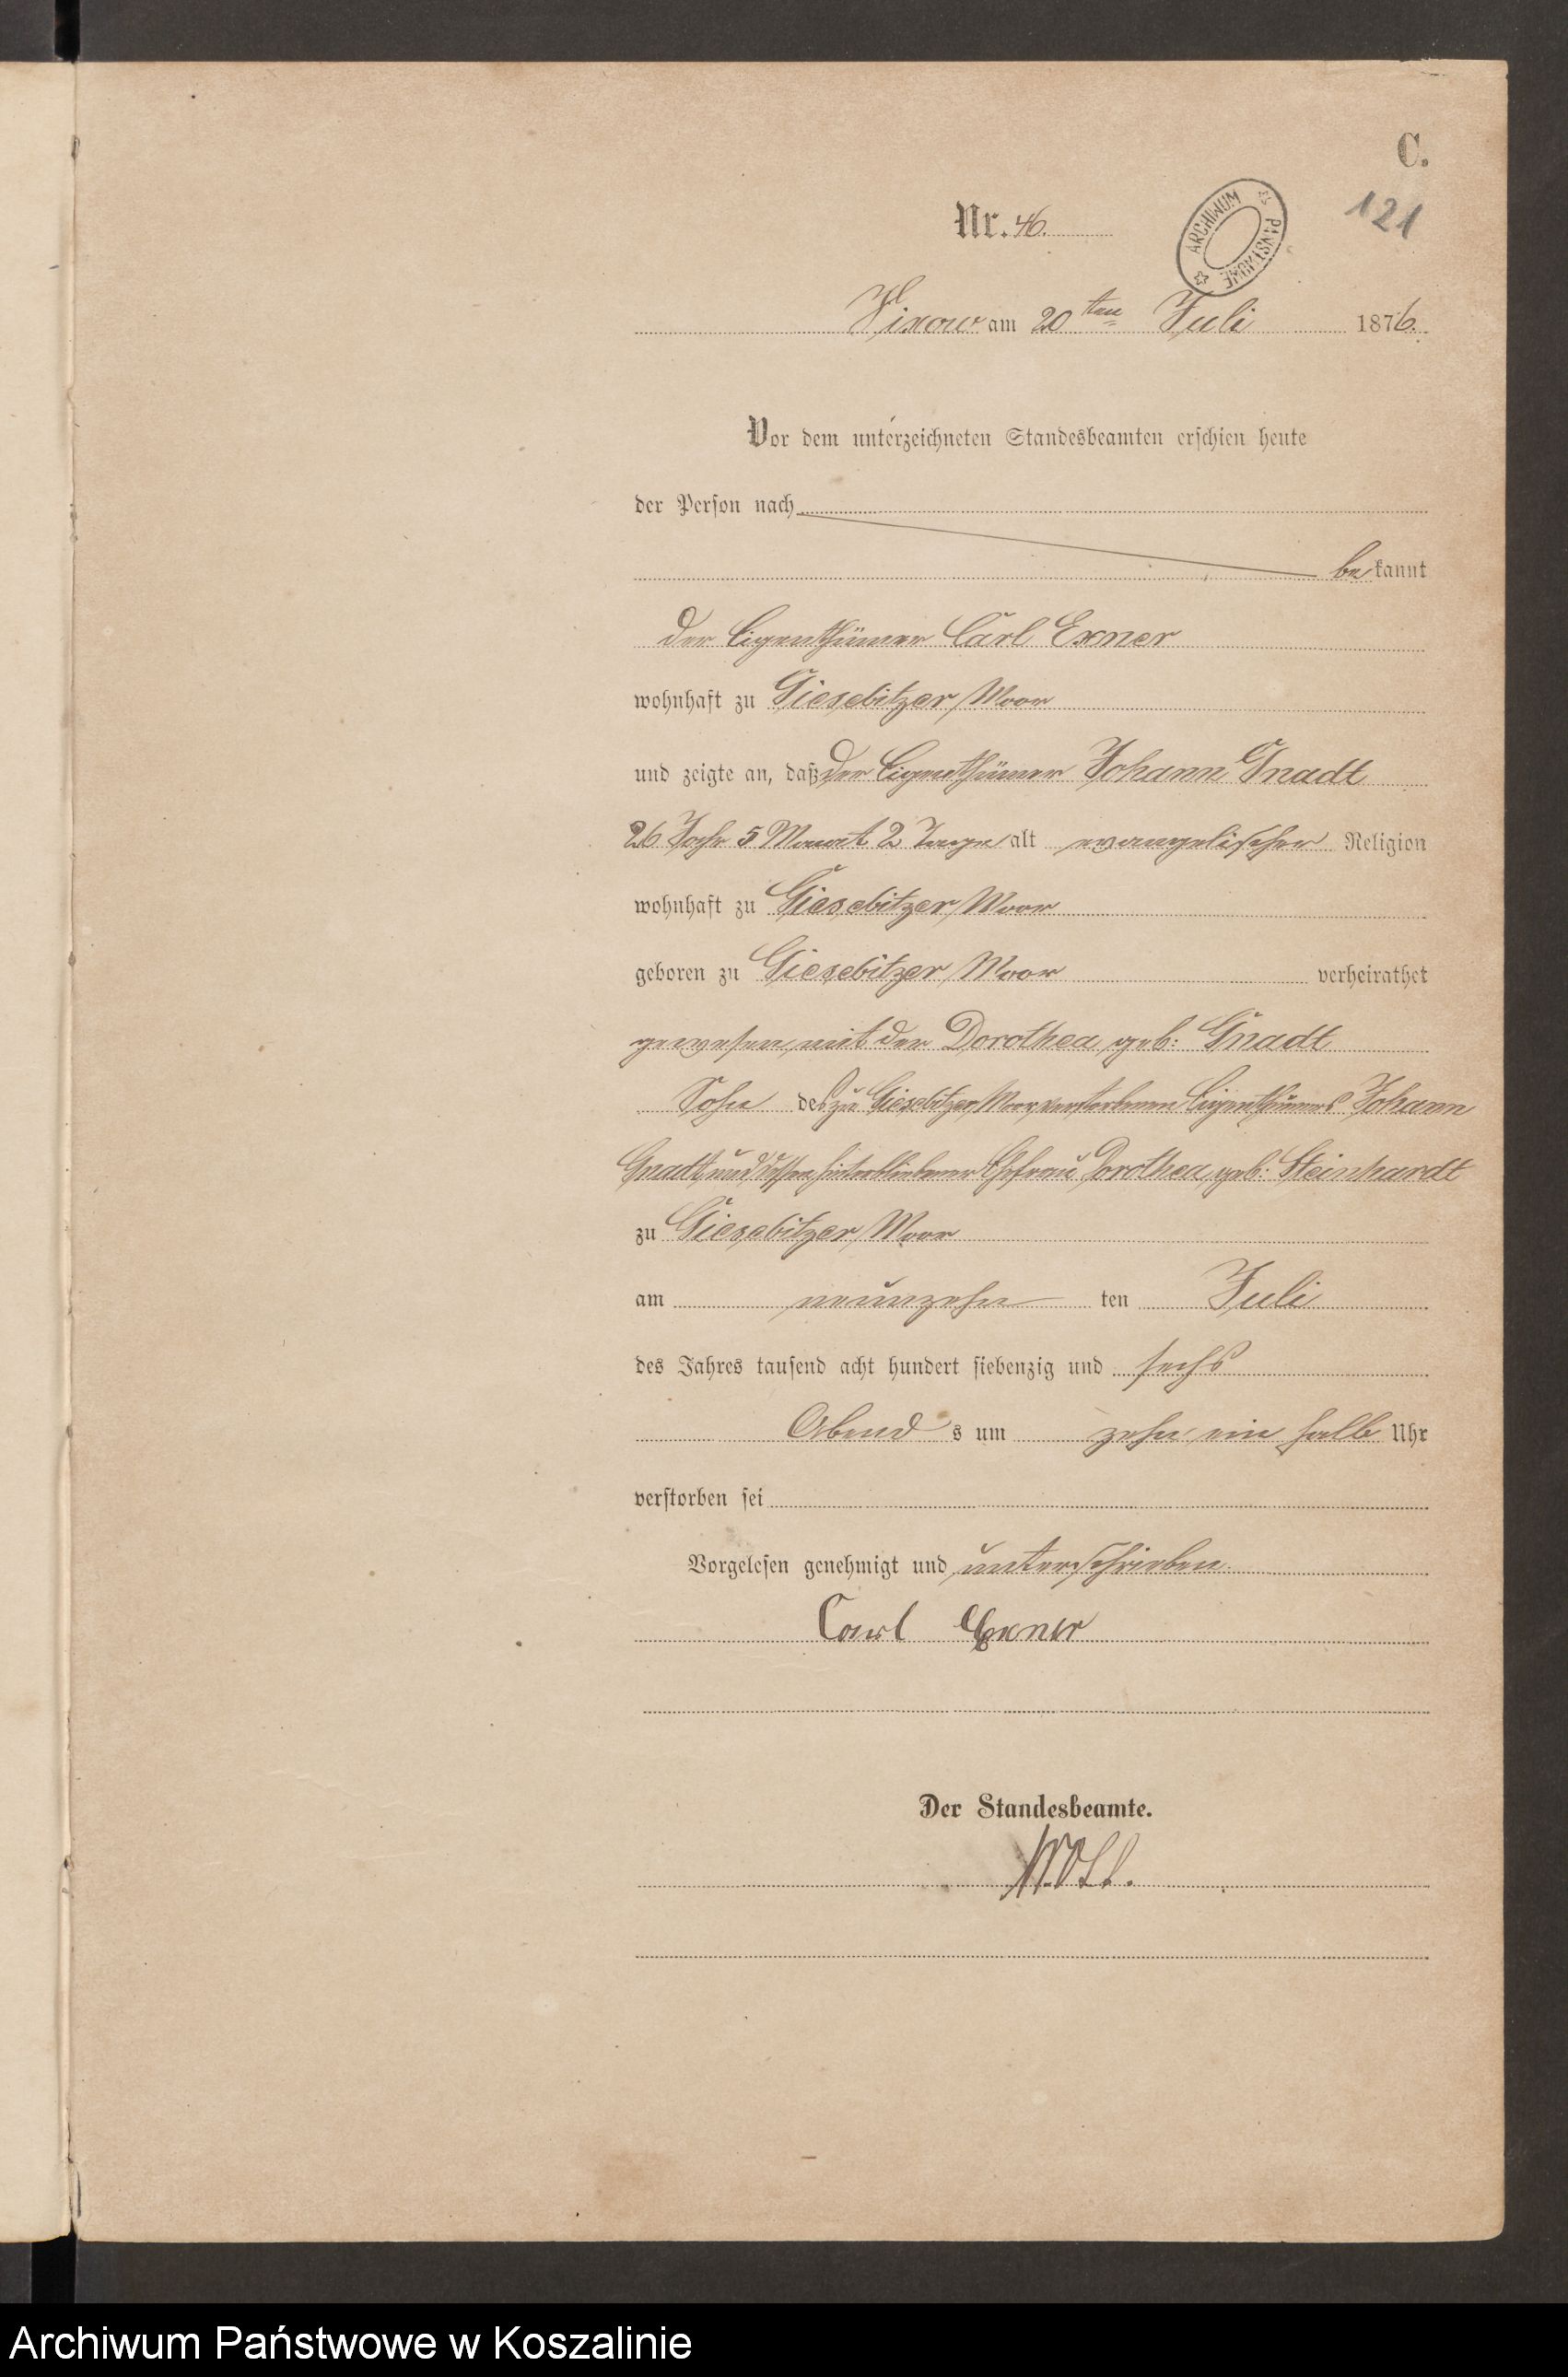 C.
121
Nr. 46.
ARCHIWUM PAŃSTWOWE
Vixow am 20ten Juli 1876.
Vor dem unterzeichneten Standesbeamten erschien heute
der Person nach
bekannt
der Eigenthümer Carl Exner
wohnhaft zu Giesebitzer Moor
und zeigte an, daß der Eigenthümer Johann Gnadt
26 Jahr 5 Monat 2 Tage alt evangelischer Religion
wohnhaft zu Giesebitzer Moor
geboren zu Giesebitzer Moor verheirathet
gewesen mit der Dorothea geb: Gnadt
Sohn des zu Giesebitzer Moor verstorbenen Eigenthümers Johann
Gnadt und dessen hinterbliebener Ehefrau Dorothea, geb: Steinhardt
zu Giesebitzer Moor
am neunzehn ten Juli
des Jahres tausend acht hundert siebenzig und sechs
Abend s um zehn ein halb Uhr
verstorben sei
Vorgelesen genehmigt und unterschrieben.
Carl Exner
Der Standesbeamte.
Archiwum Państwowe w Koszalinie